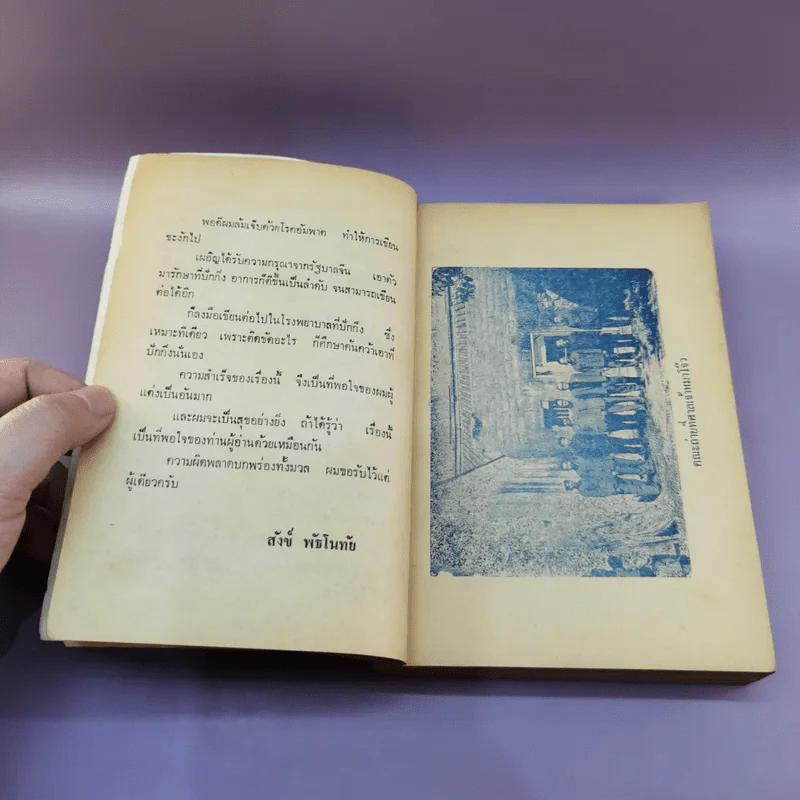 พอดีผมล้มเจ็บด้วยโรคอัมพาต ทำให้การเขียน
ชะงักไป
เผอิญได้รับความกรุณาจากรัฐบาลจีน เอาตัว
มารักษาที่ปักกิ่ง อาการก็ดีขึ้นเป็นลำดับ จนสามารถเขียน
ต่อได้อีก
ก็ลงมือเขียนต่อไปในโรงพยาบาลที่ปักกิ่ง ซึ่ง
เหมาะทีเดียว เพราะติดขัดอะไร ก็ศึกษาค้นคว้าเอาที่
ปักกิ่งนั่นเอง
ความสำเร็จของเรื่องนี้ จึงเป็นที่พอใจของผมผู้
แต่งเป็นอันมาก
และผมจะเป็นสุขอย่างยิ่ง ถ้าได้รู้ว่า เรื่องนี้
เป็นที่พอใจของท่านผู้อ่านด้วยเหมือนกัน
ความผิดพลาดบกพร่องทั้งมวล ผมขอรับไว้แต่
ผู้เดียวครับ
สังข์ พัธโนทัย
คณะถ่ายที่ศาลเจ้า